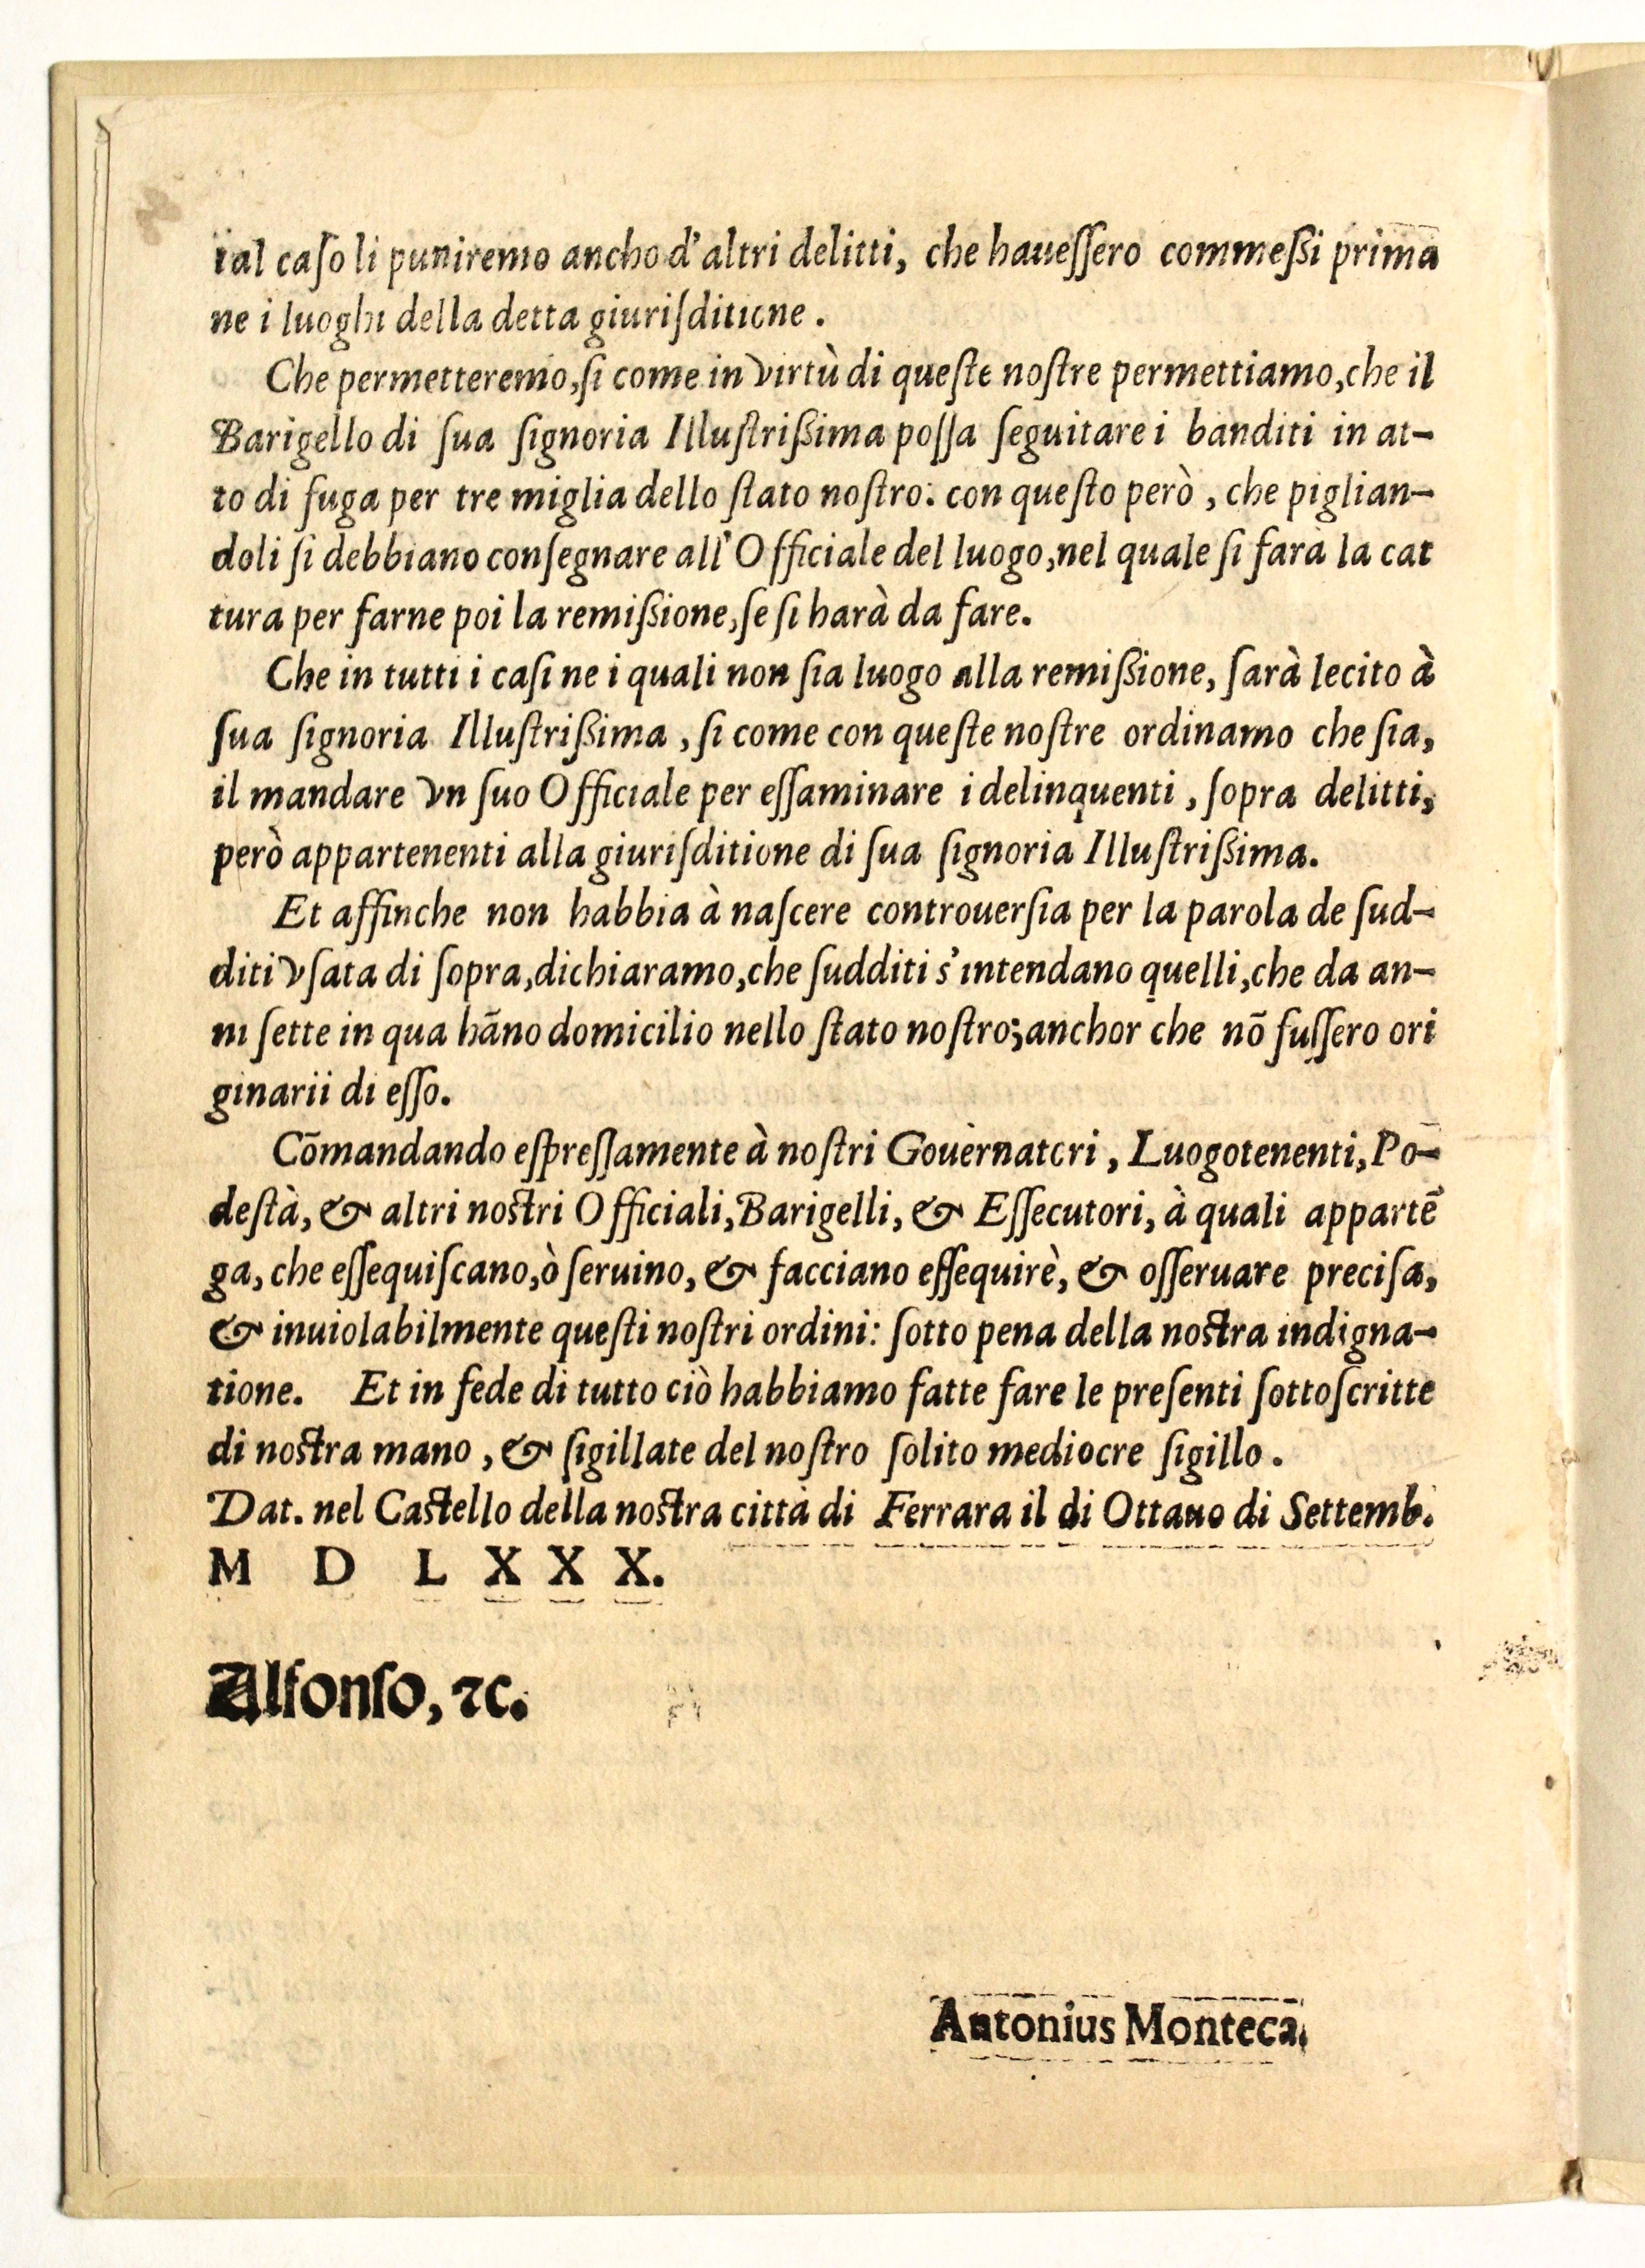 tal caſo li puniremo ancho d'altri delitti, che haueſſero commeßi prima
ne i luoghi della detta giuriſditione.
Che permetteremo, ſi come in virtù di queſte noſtre permettiamo, che il
Barigello di ſua ſignoria Illuſtrißima poſſa ſeguitare i banditi in at-
to di fuga per tre miglia dello ſtato noſtro: con queſto però, che piglian-
doli ſi debbiano conſegnare all'Officiale del luogo, nel quale ſi fara la cat
tura per farne poi la remißione, ſe ſi harà da fare.
Che in tutti i caſi ne i quali non ſia luogo alla remißione, ſarà lecito à
ſua ſignoria Illuſtrißima, ſi come con queſte noſtre ordinamo che ſia,
il mandare vn ſuo Officiale per eſſaminare i delinquenti, ſopra delitti,
però appartenenti alla giuriſditione di ſua ſignoria Illuſtrißima.
Et affinche non habbia à naſcere controuerſia per la parola de ſud-
diti vſata di ſopra, dichiaramo, che ſudditi s'intendano quelli, che da an-
ni ſette in qua hāno domicilio nello ſtato noſtro; anchor che nō fuſſero ori
ginarii di eſſo.
Cōmandando eſpreſſamente à noſtri Gouernatori, Luogotenenti, Po-
deſtà, & altri noſtri Officiali, Barigelli, & Eſſecutori, à quali appartē
ga, che eſſequiſcano, ò ſeruino, & facciano eſſequirè, & oſſeruare preciſa,
& inuiolabilmente queſti noſtri ordini: ſotto pena della noſtra indigna-
tione. Et in fede di tutto ciò habbiamo fatte fare le preſenti ſottoſcritte
di noſtra mano, & ſigillate del noſtro ſolito mediocre ſigillo.
Dat. nel Caſtello della noſtra città di Ferrara il di Ottauo di Settemb.
M D L X X X.
Alfonſo, ⁊c.
Antonius Monteca.